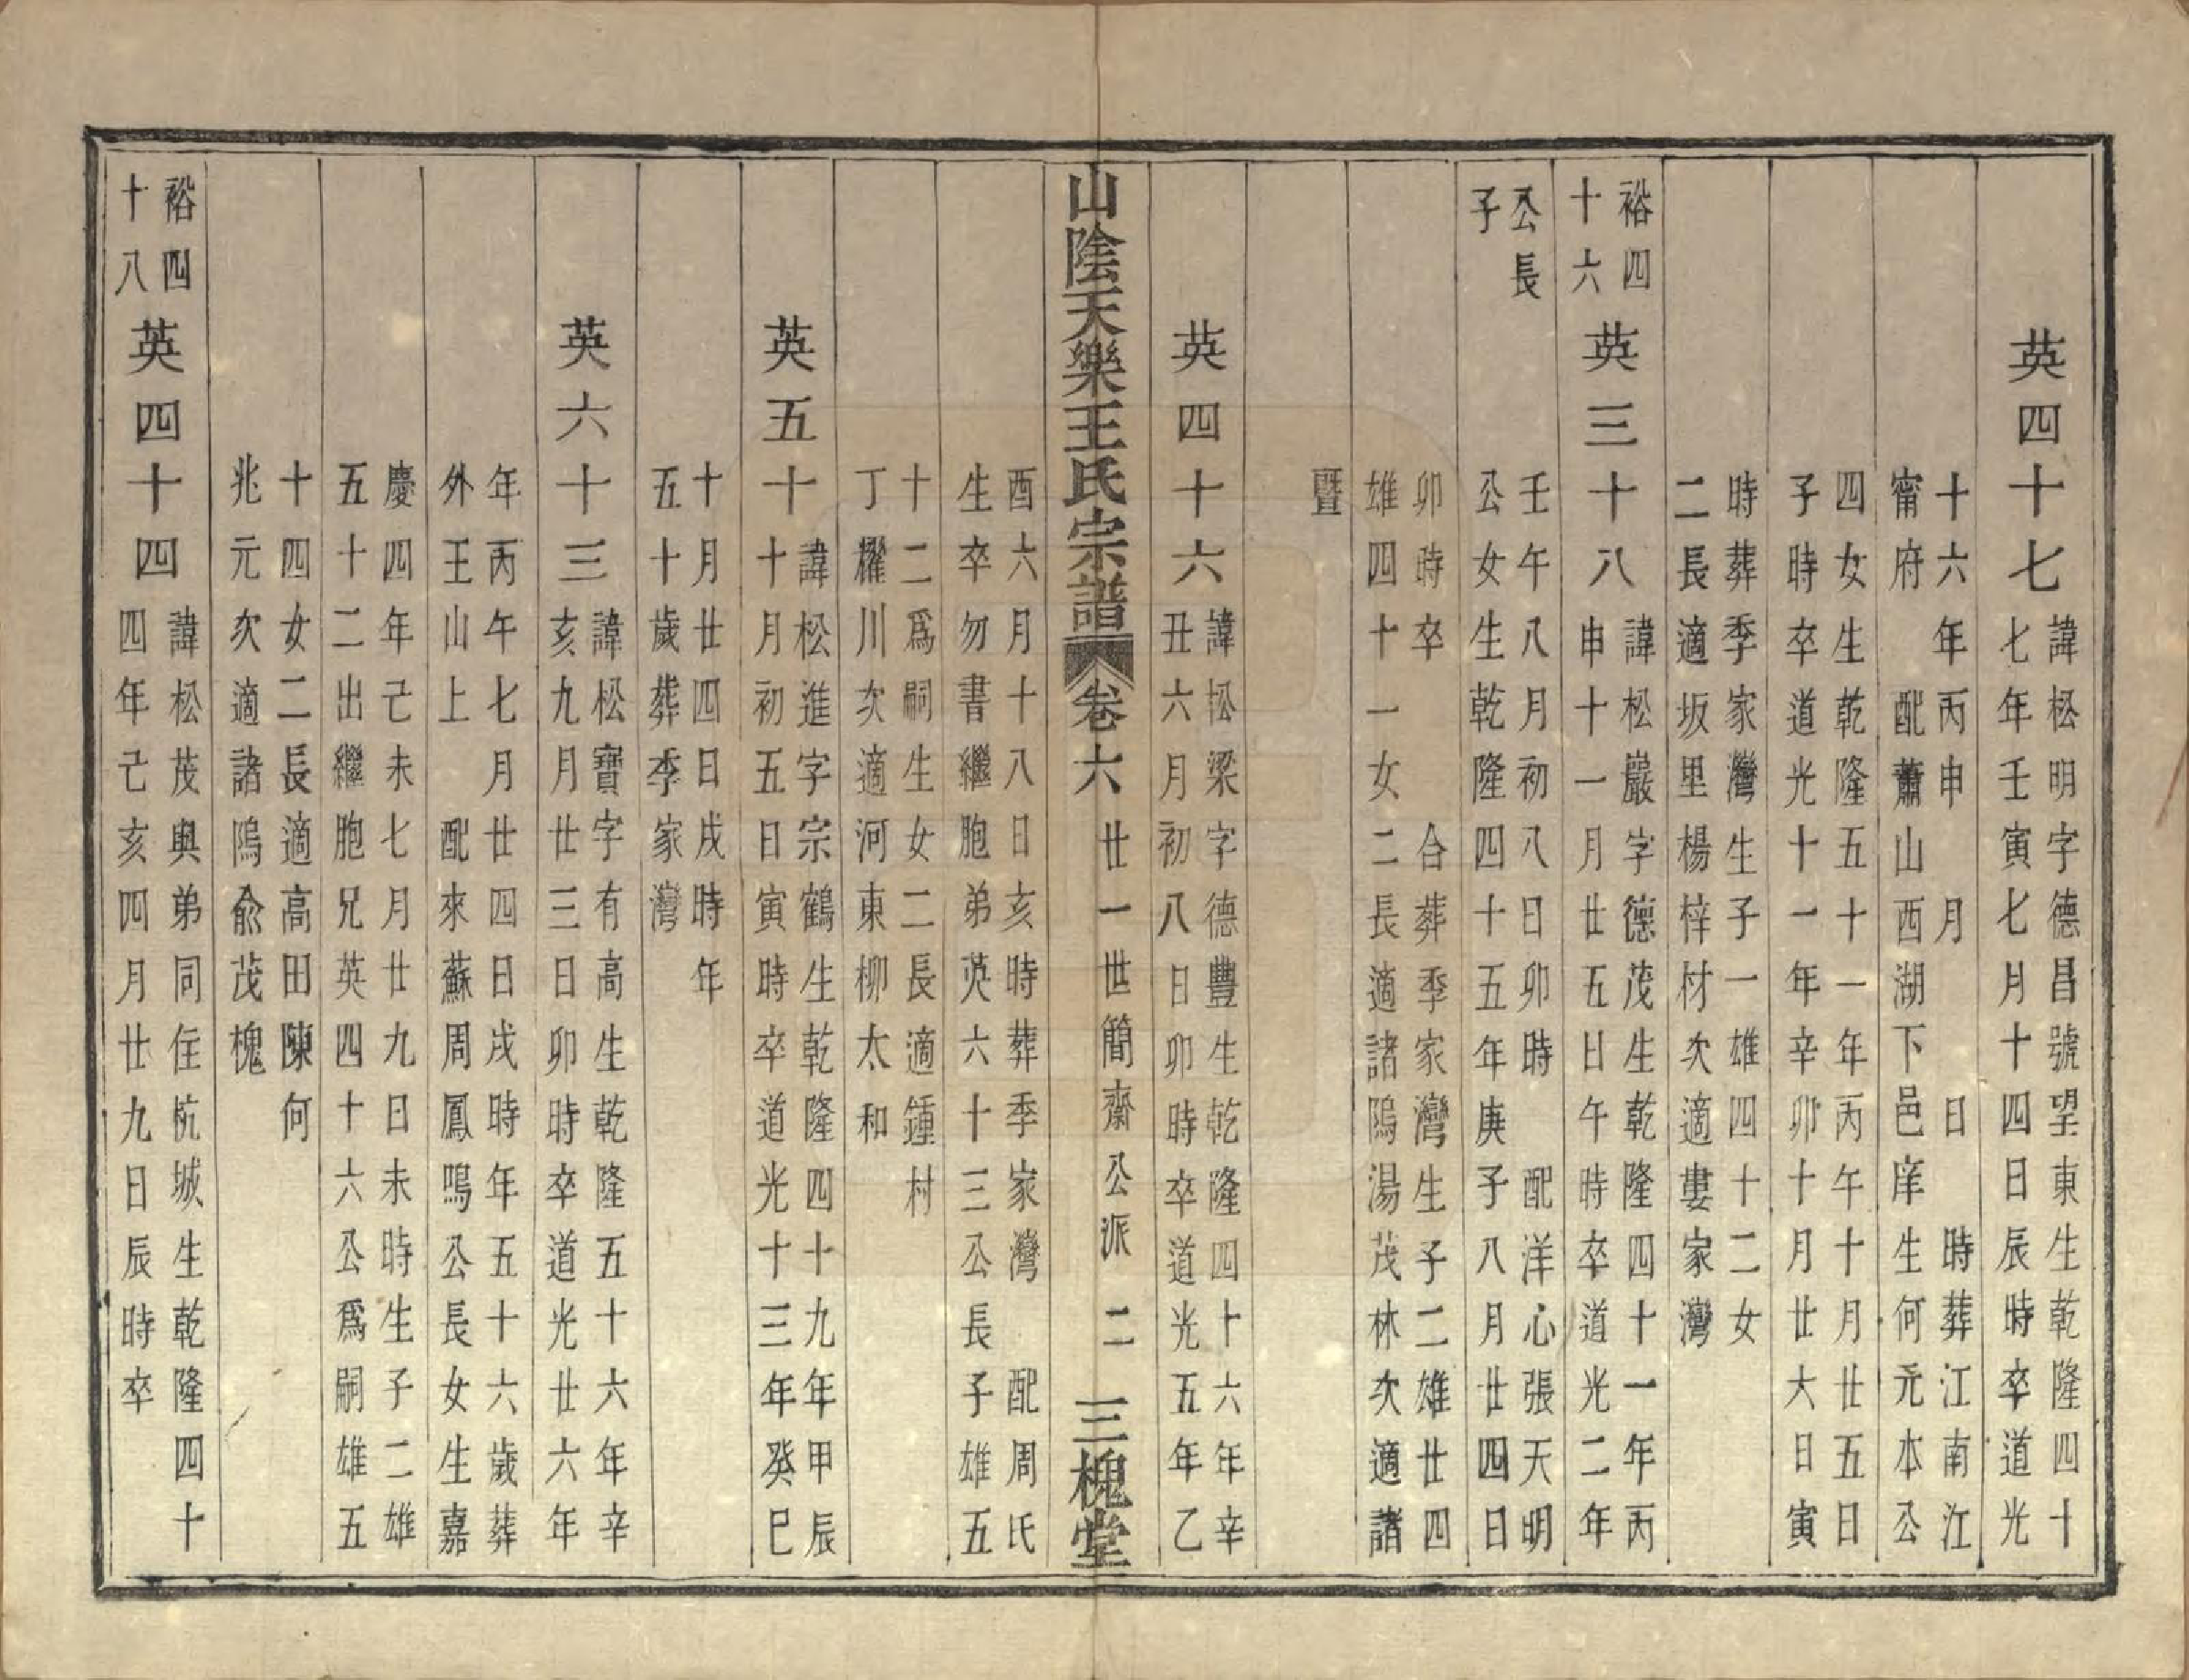 英四十七
諱松明字德昌號望東生乾隆四十
七年壬寅七月十四日辰時卒道光
十六年丙申 月 日 時葬江南江
甯府 配蕭山西湖下邑庠生何元本公
四女生乾隆五十一年丙午十月廿五日
子時卒道光十一年辛卯十月廿大日寅
時葬季家灣生子一雄四十二女
二長適坂里楊梓材次適婁家灣
裕四
十六
英三十八
諱松巖字德茂生乾隆四十一年丙
申十一月廿五日午時卒道光二年
公長
子
壬午八月初八日卯時 配洋心張天明
公女生乾隆四十五年庚子八月廿四日
卯時卒 合葬季家灣生子二雄廿四
雄四十一女二長適諸鳴湯茂林次適諸
暨
英四十六
諱松梁字德豐生乾隆四十六年辛
丑六月初八日卯時卒道光五年乙
山陰天樂王氏宗譜 卷六 廿一世簡齋公派 二 三槐堂
酉六月十八日亥時葬季家灣 配周氏
生卒勿書繼胞弟英六十三公長子雄五
十二爲嗣生女二長適鍾村
丁櫂川次適河東柳太和
英五十
諱松進字宗鶴生乾隆四十九年甲辰
十月初五日寅時卒道光十三年癸巳
十月廿四日戌時年
五十歲葬季家灣
英六十三
諱松寶字有高生乾隆五十六年辛
亥九月廿三日卯時卒道光廿六年
年丙午七月廿四日戌時年五十六歲葬
外王山上 配來蘇周鳳鳴公長女生嘉
慶四年己未七月廿九日未時生子二雄
五十二出繼胞兄英四十六公爲嗣雄五
十四女二長適高田陳何
兆元次適諸鳴俞茂槐
裕四
十八
英四十四
諱松茂與弟同住杭城生乾隆四十
四年己亥四月廿九日辰時卒